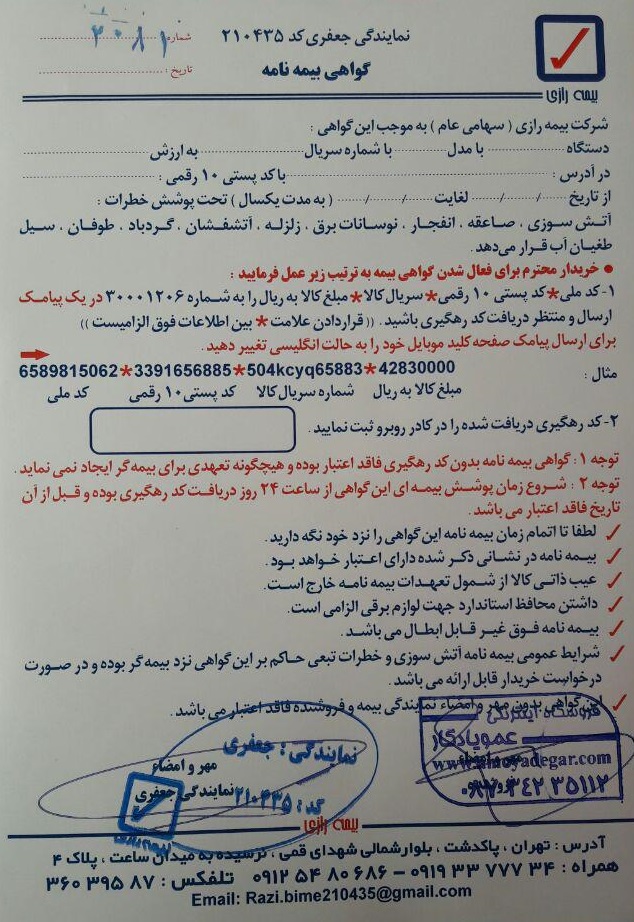 نمایندگی جعفری کد ۲۱۰۴۳۵
شماره : ۲۰۸۱
گواهی بیمه نامه
تاریخ :
بیمه رازی
شرکت بیمه رازی ( سهامی عام ) به موجب این گواهی :
دستگاه با مدل با شماره سریال به ارزش
در آدرس : با کد پستی ۱۰ رقمی :
از تاریخ / / لغایت / / ( به مدت یکسال ) تحت پوشش خطرات :
آتش سوزی ، صاعقه ، انفجار ، نوسانات برق ، زلزله ، آتشفشان ، گردباد ، طوفان ، سیل
طغیان آب قرار می دهد .
• خریدار محترم برای فعال شدن گواهی بیمه به ترتیب زیر عمل فرمایید :
۱- کد ملی*کد پستی ۱۰ رقمی*سریال کالا*مبلغ کالا به ریال را به شماره ۳۰۰۰۱۲۰۶ در یک پیامک
ارسال و منتظر دریافت کد رهگیری باشید . (( قراردادن علامت * بین اطلاعات فوق الزامیست ))
برای ارسال پیامک صفحه کلید موبایل خود را به حالت انگلیسی تغییر دهید .
مثال : 6589815062*3391656885*504kcyq65883*42830000
مبلغ کالا به ریال شماره سریال کالا کد پستی ۱۰ رقمی کد ملی
۲- کد رهگیری دریافت شده را در کادر روبرو ثبت نمایید .
توجه ۱ : گواهی بیمه نامه بدون کد رهگیری فاقد اعتبار بوده و هیچگونه تعهدی برای بیمه گر ایجاد نمی نماید .
توجه ۲ : شروع زمان پوشش بیمه ای این گواهی از ساعت ۲۴ روز دریافت کد رهگیری بوده و قبل از آن
تاریخ فاقد اعتبار می باشد .
لطفا تا اتمام زمان بیمه نامه این گواهی را نزد خود نگه دارید .
بیمه نامه در نشانی ذکر شده دارای اعتبار خواهد بود .
عیب ذاتی کالا از شمول تعهدات بیمه نامه خارج است.
داشتن محافظ استاندارد جهت لوازم برقی الزامی است.
بیمه نامه فوق غیر قابل ابطال می باشد .
شرایط عمومی بیمه نامه آتش سوزی و خطرات تبعی حاکم بر این گواهی نزد بیمه گر بوده و در صورت
درخواست خریدار قابل ارائه می باشد .
این گواهی بدون مهر و امضاء نمایندگی بیمه و فروشنده فاقد اعتبار می باشد .
فروشگاه اینترنتی
عمویادگار
www.amoyadegar.com
نمایندگی : جعفری
کد : ۲۱۰۴۳۵
مهر و امضاء
نمایندگی جعفری
بیمه رازی
آدرس : تهران ، پاکدشت ، بلوارشمالی شهدای قمی ، نرسیده به میدان ساعت ، پلاک ۴
همراه : ۳۴ ۷۷۷ ۳۳ ۰۹۱۹ - ۶۸۶ ۸۰ ۵۴ ۰۹۱۲ تلفکس : ۸۷ ۳۹۵ ۳۶۰
Email: Razi.bime210435@gmail.com